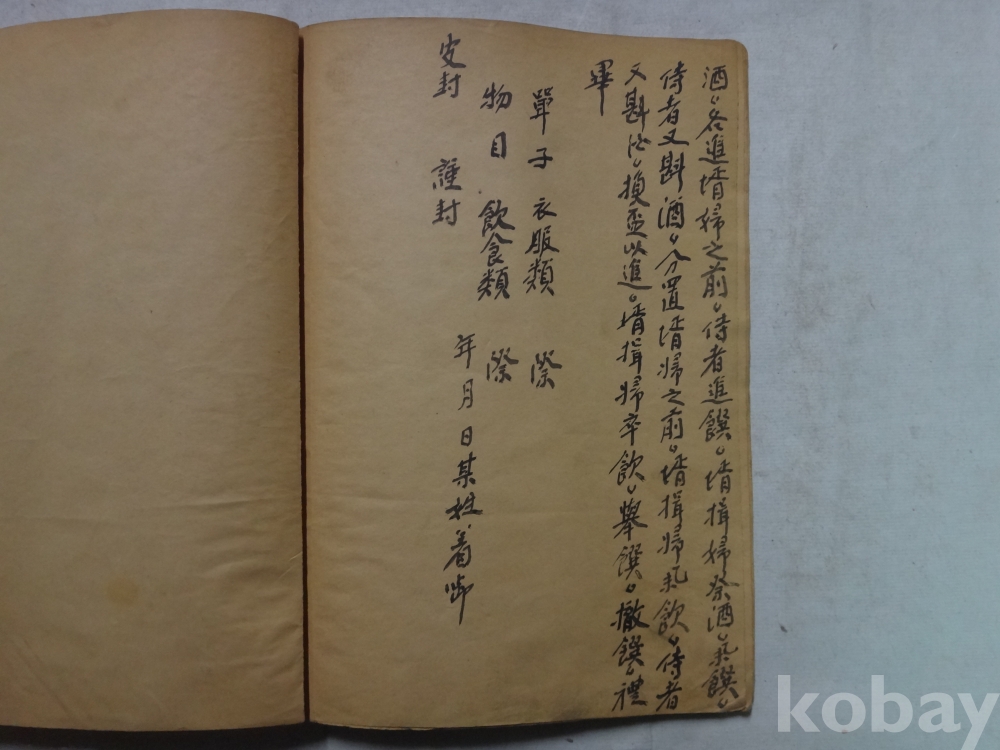 酒、各進壻婦之前、侍者進饌、壻揖婦祭酒、擧饌、
侍者又斟酒、分置壻婦之前、壻揖婦擧飲、侍者
又斟酒、換盃以進、壻揖婦卒飲、擧饌、撤饌、禮
畢
單子 衣服類 際
物目 飲食類 際
年月日某姓着啣
皮封 謹封
kobay